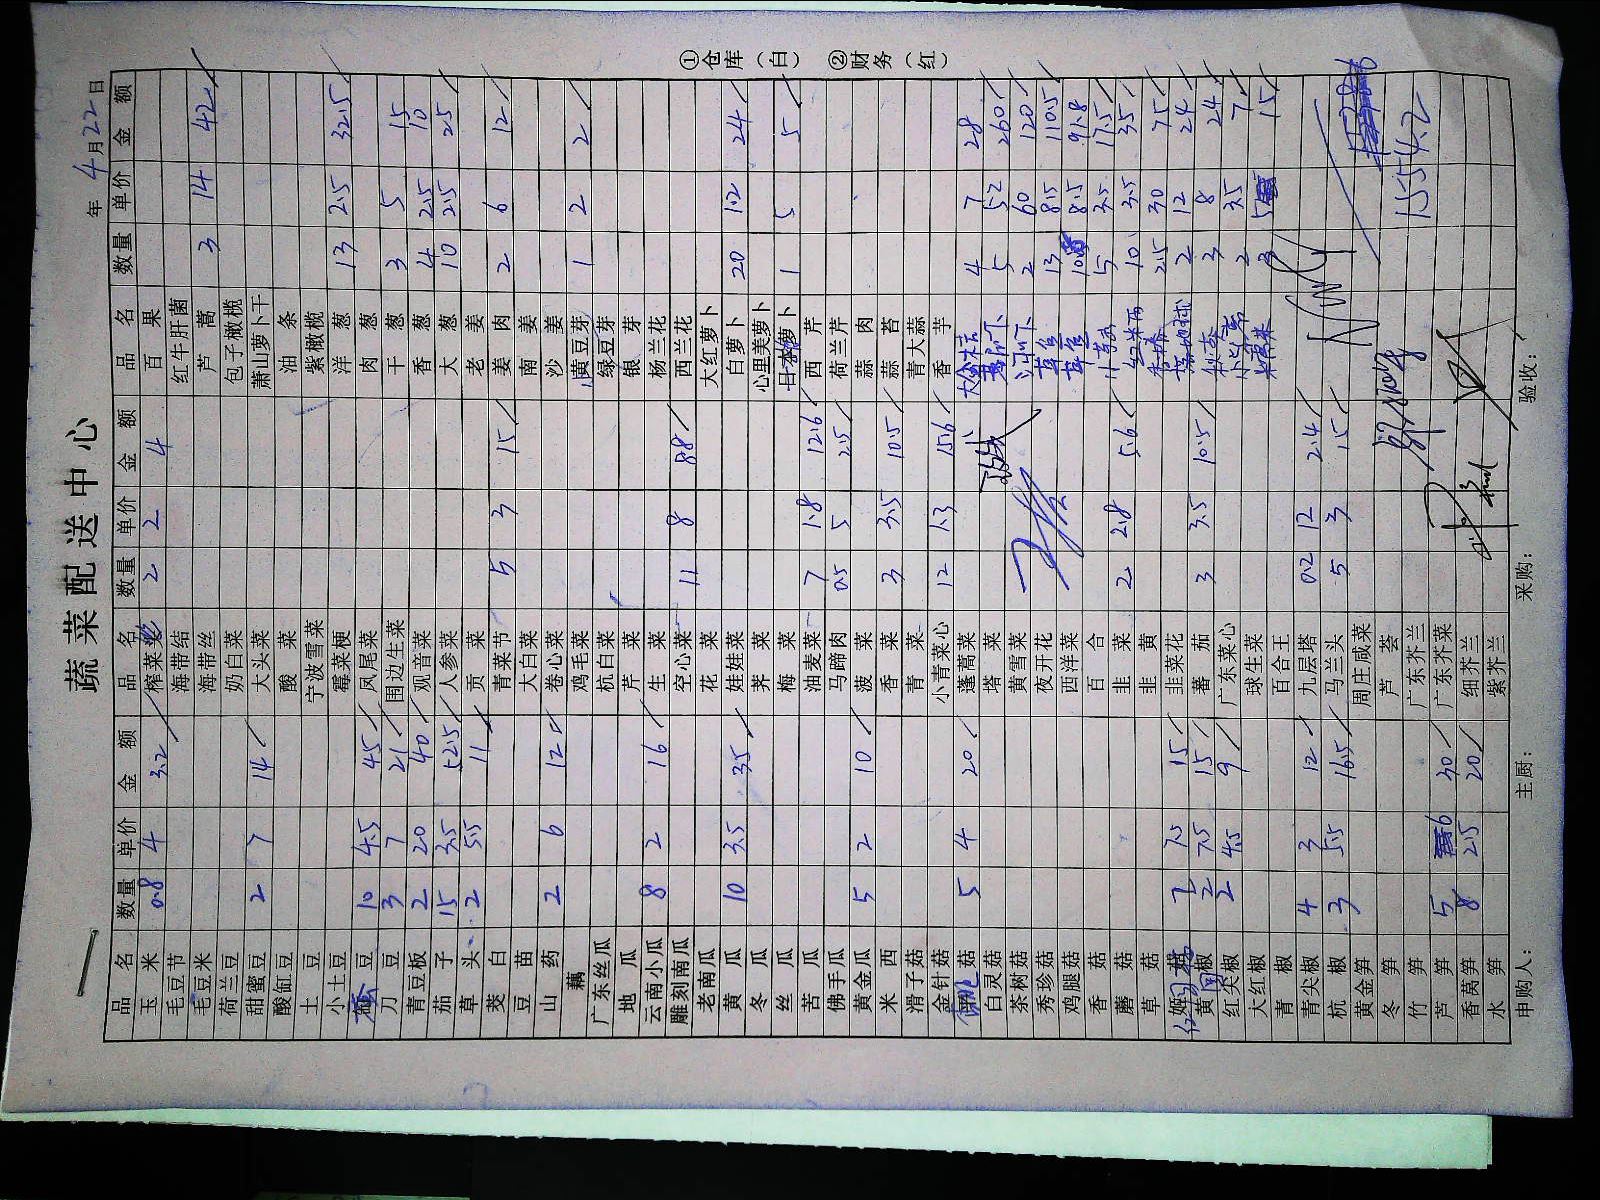 蔬菜配送中心
年 4月22日
品名 数量 单价 金额 品名 数量 单价 金额 品名 数量 单价 金额
玉米 0.8 4 3.2 榨菜 2 2 4 百果
毛豆节 海带结 红牛肝菌
毛豆米 海带丝 芦蒿 3 14 42
荷兰豆 奶白菜 包子橄榄
甜蜜豆 2 7 14 大头菜 萧山萝卜干
酸缸豆 酸菜 油条
土豆 宁波雪菜 紫橄榄
小土豆 霉菜梗 洋葱 13 2.5 32.5
蚕豆 10 4.5 45 凤尾菜 肉葱
刀豆 3 7 21 围边生菜 干葱 3 5 15
青豆板 2 20 40 观音菜 香葱 4 2.5 10
茄子 15 3.5 52.5 人参菜 大葱 10 2.5 25
草头 2 5.5 11 贡菜 老姜
茭白 青菜节 5 3 15 姜肉 2 6 12
豆苗 大白菜 南姜
山药 2 6 12 卷心菜 沙姜
藕 鸡毛菜 黄豆芽 1 2 2
广东丝瓜 杭白菜 绿豆芽
地瓜 芹菜 银芽
云南小瓜 8 2 16 生菜 杨兰花
雕刻南瓜 空心菜 11 8 88 西兰花
老南瓜 花菜 大红萝卜
黄瓜 10 3.5 35 娃娃菜 白萝卜 20 1.2 24
冬瓜 荠菜 心里美萝卜
丝瓜 梅菜 日本萝卜 1 5 5
苦瓜 油麦菜 7 1.8 12.6 西芹
佛手瓜 马蹄肉 0.5 5 2.5 荷兰芹
黄金瓜 5 2 10 菠菜 蒜肉
米西 香菜 3 3.5 10.5 蒜苔
滑子菇 青菜 青大蒜
金针菇 小青菜心 12 1.3 15.6 香芋
菇 5 4 20 蓬蒿菜 4 7 28
白灵菇 塔菜 5 52 260
茶树菇 黄雪菜 河虾 2 60 120
秀珍菇 夜开花 草鱼 13 8.5 110.5
鸡腿菇 西洋菜 草鱼 10.8 8.5 91.8
香菇 百合 小黄瓜 5 3.5 17.5
蘑菇 韭菜 2 2.8 5.6 红米苋 10 3.5 35
草菇 韭黄 香椿 2.5 30 75
红圆椒 2 7.5 15 韭菜花 2 12 24
黄圆椒 2 7.5 15 番茄 3 3.5 10.5 秋葵 3 8 24
红尖椒 2 4.5 9 广东菜心 2 3.5 7
大红椒 球生菜 3 5 15
青椒 百合王
青尖椒 4 3 12 九层塔 0.2 12 2.4
杭椒 3 5.5 16.5 马兰头 5 3 15
黄金笋 周庄咸菜
冬笋 芦荟
竹笋 广东芥兰 1554.2
芦笋 5 6 30 广东芥菜
香莴笋 8 2.5 20 细芥兰
水笋 紫芥兰
申购人： 主厨： 采购： 验收：
①仓库（白） ②财务（红）